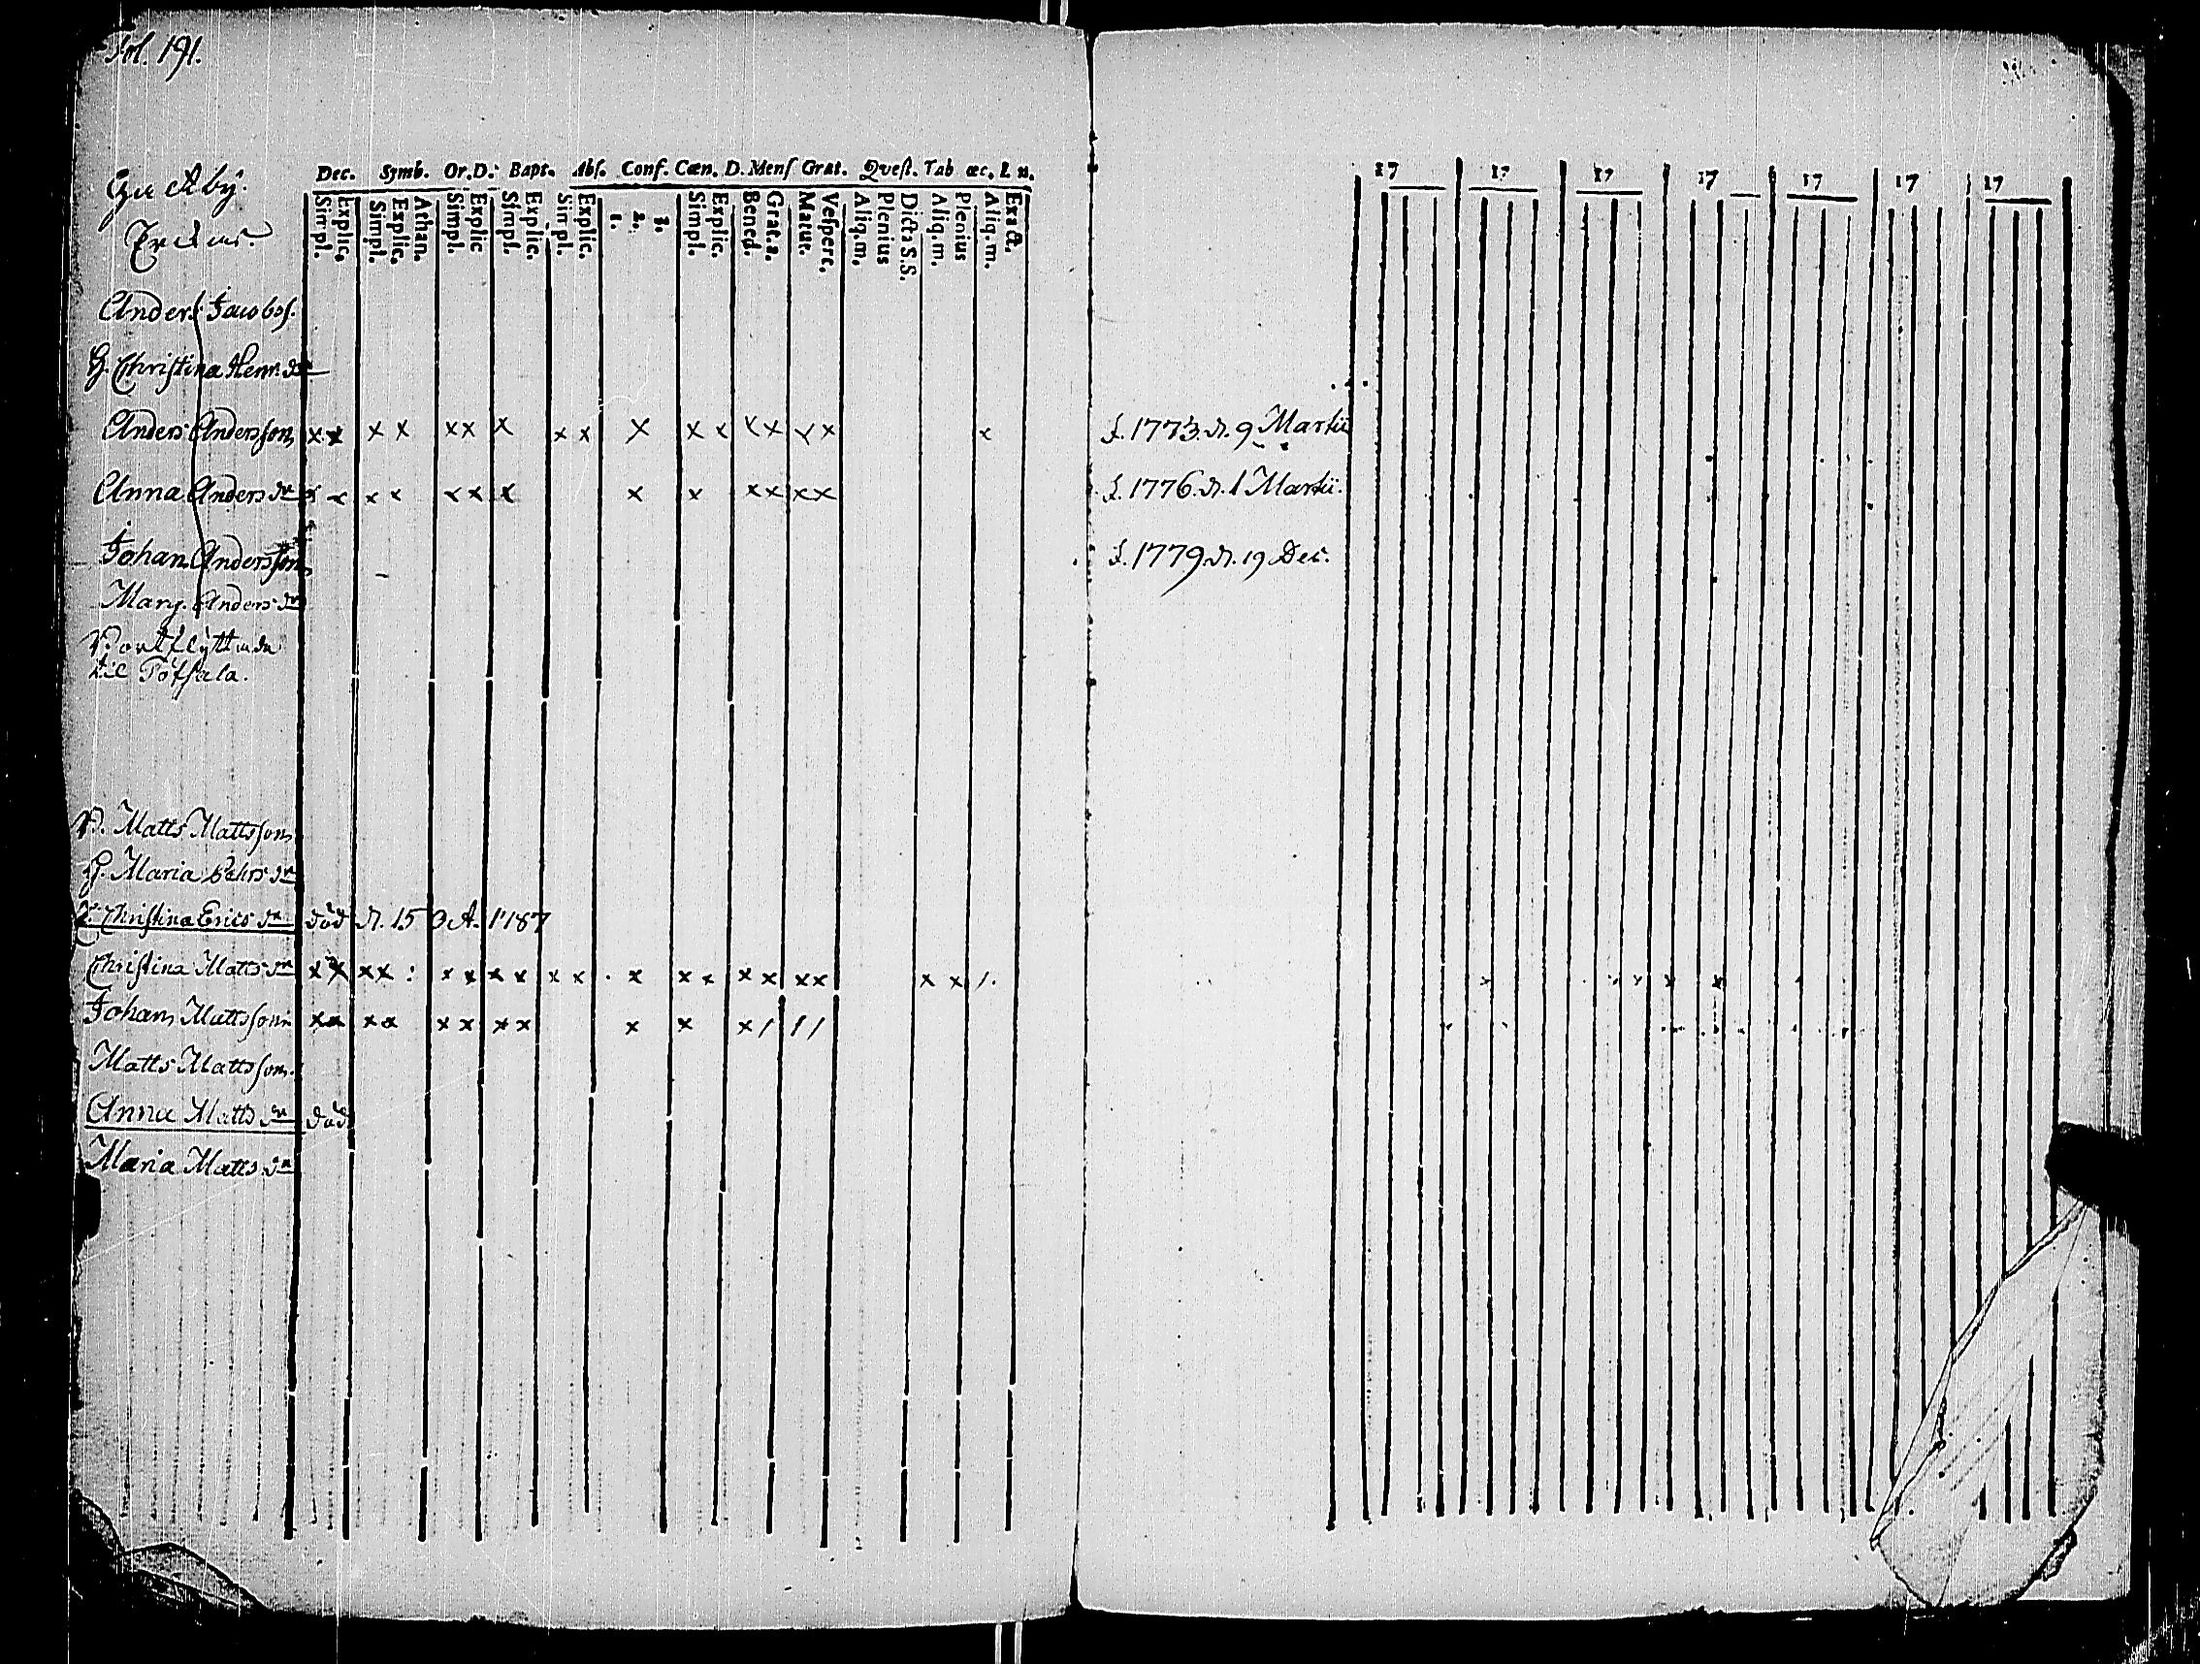 Fol. 191.
Dec. Symb. Or.D. Bapt. Abs. Conf. Cœn. D. Mens Grat. Qvest. Tab œc. L n.
Simpl. Explic. Simpl. Explic. Athan. Simpl. Explic Simpl. Explic. Simpl. Explic. 1. 2. 3. Simpl. Explic. Bened. Grat.a. Matut. Vespert. Aliq.m. Plenius Dicta S.S. Aliq.m. Plenius Aliq.m. Exact.
17 17 17 17 17 17 17
Anders Jacobs.
H. Christina Henr. dr
Anders Andersson x x x x x x x x x x x x x x x x x f. 1773. d. 9 Martii
Anna Anders dr x x x x x x x x x x x x x f. 1776. d. 1 Martii.
Johan Andersson f. 1779 d. 19 Dec.
Marg. Anders dr
til Töfsala.
B. Matts Mattsson
H. Maria dr
Christina Erics dr död d. 15 1787
Christina Matts dr x x x x : x x x x x x . x x x x x x x x x 1.
Johan Mattsson x x x x x x x x x x x / / /
Matts Mattsson
Anna Matts dr död
Maria Matts dr